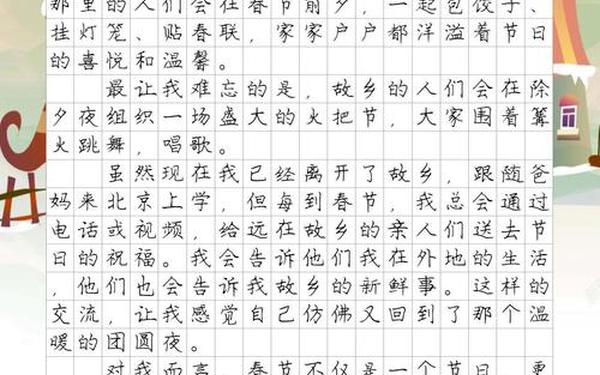 那里的人们会在春节前夕，一起包饺子、
挂灯笼、贴春联，家家户户都洋溢着节日
的喜悦和温馨。
最让我难忘的是，故乡的人们会在除
夕夜组织一场盛大的火把节，大家围着篝
火跳舞，唱歌。
虽然现在我已经离开了故乡，跟随爸
妈来北京上学，但每到春节，我总会通过
电话或视频，给远在故乡的亲人们送去节
日的祝福。我会告诉他们我在外地的生活
，他们也会告诉我故乡的新鲜事。这样的
交流，让我感觉自己仿佛又回到了那个温
暖的团圆夜。
对我而言，春节不仅是一个节日，更